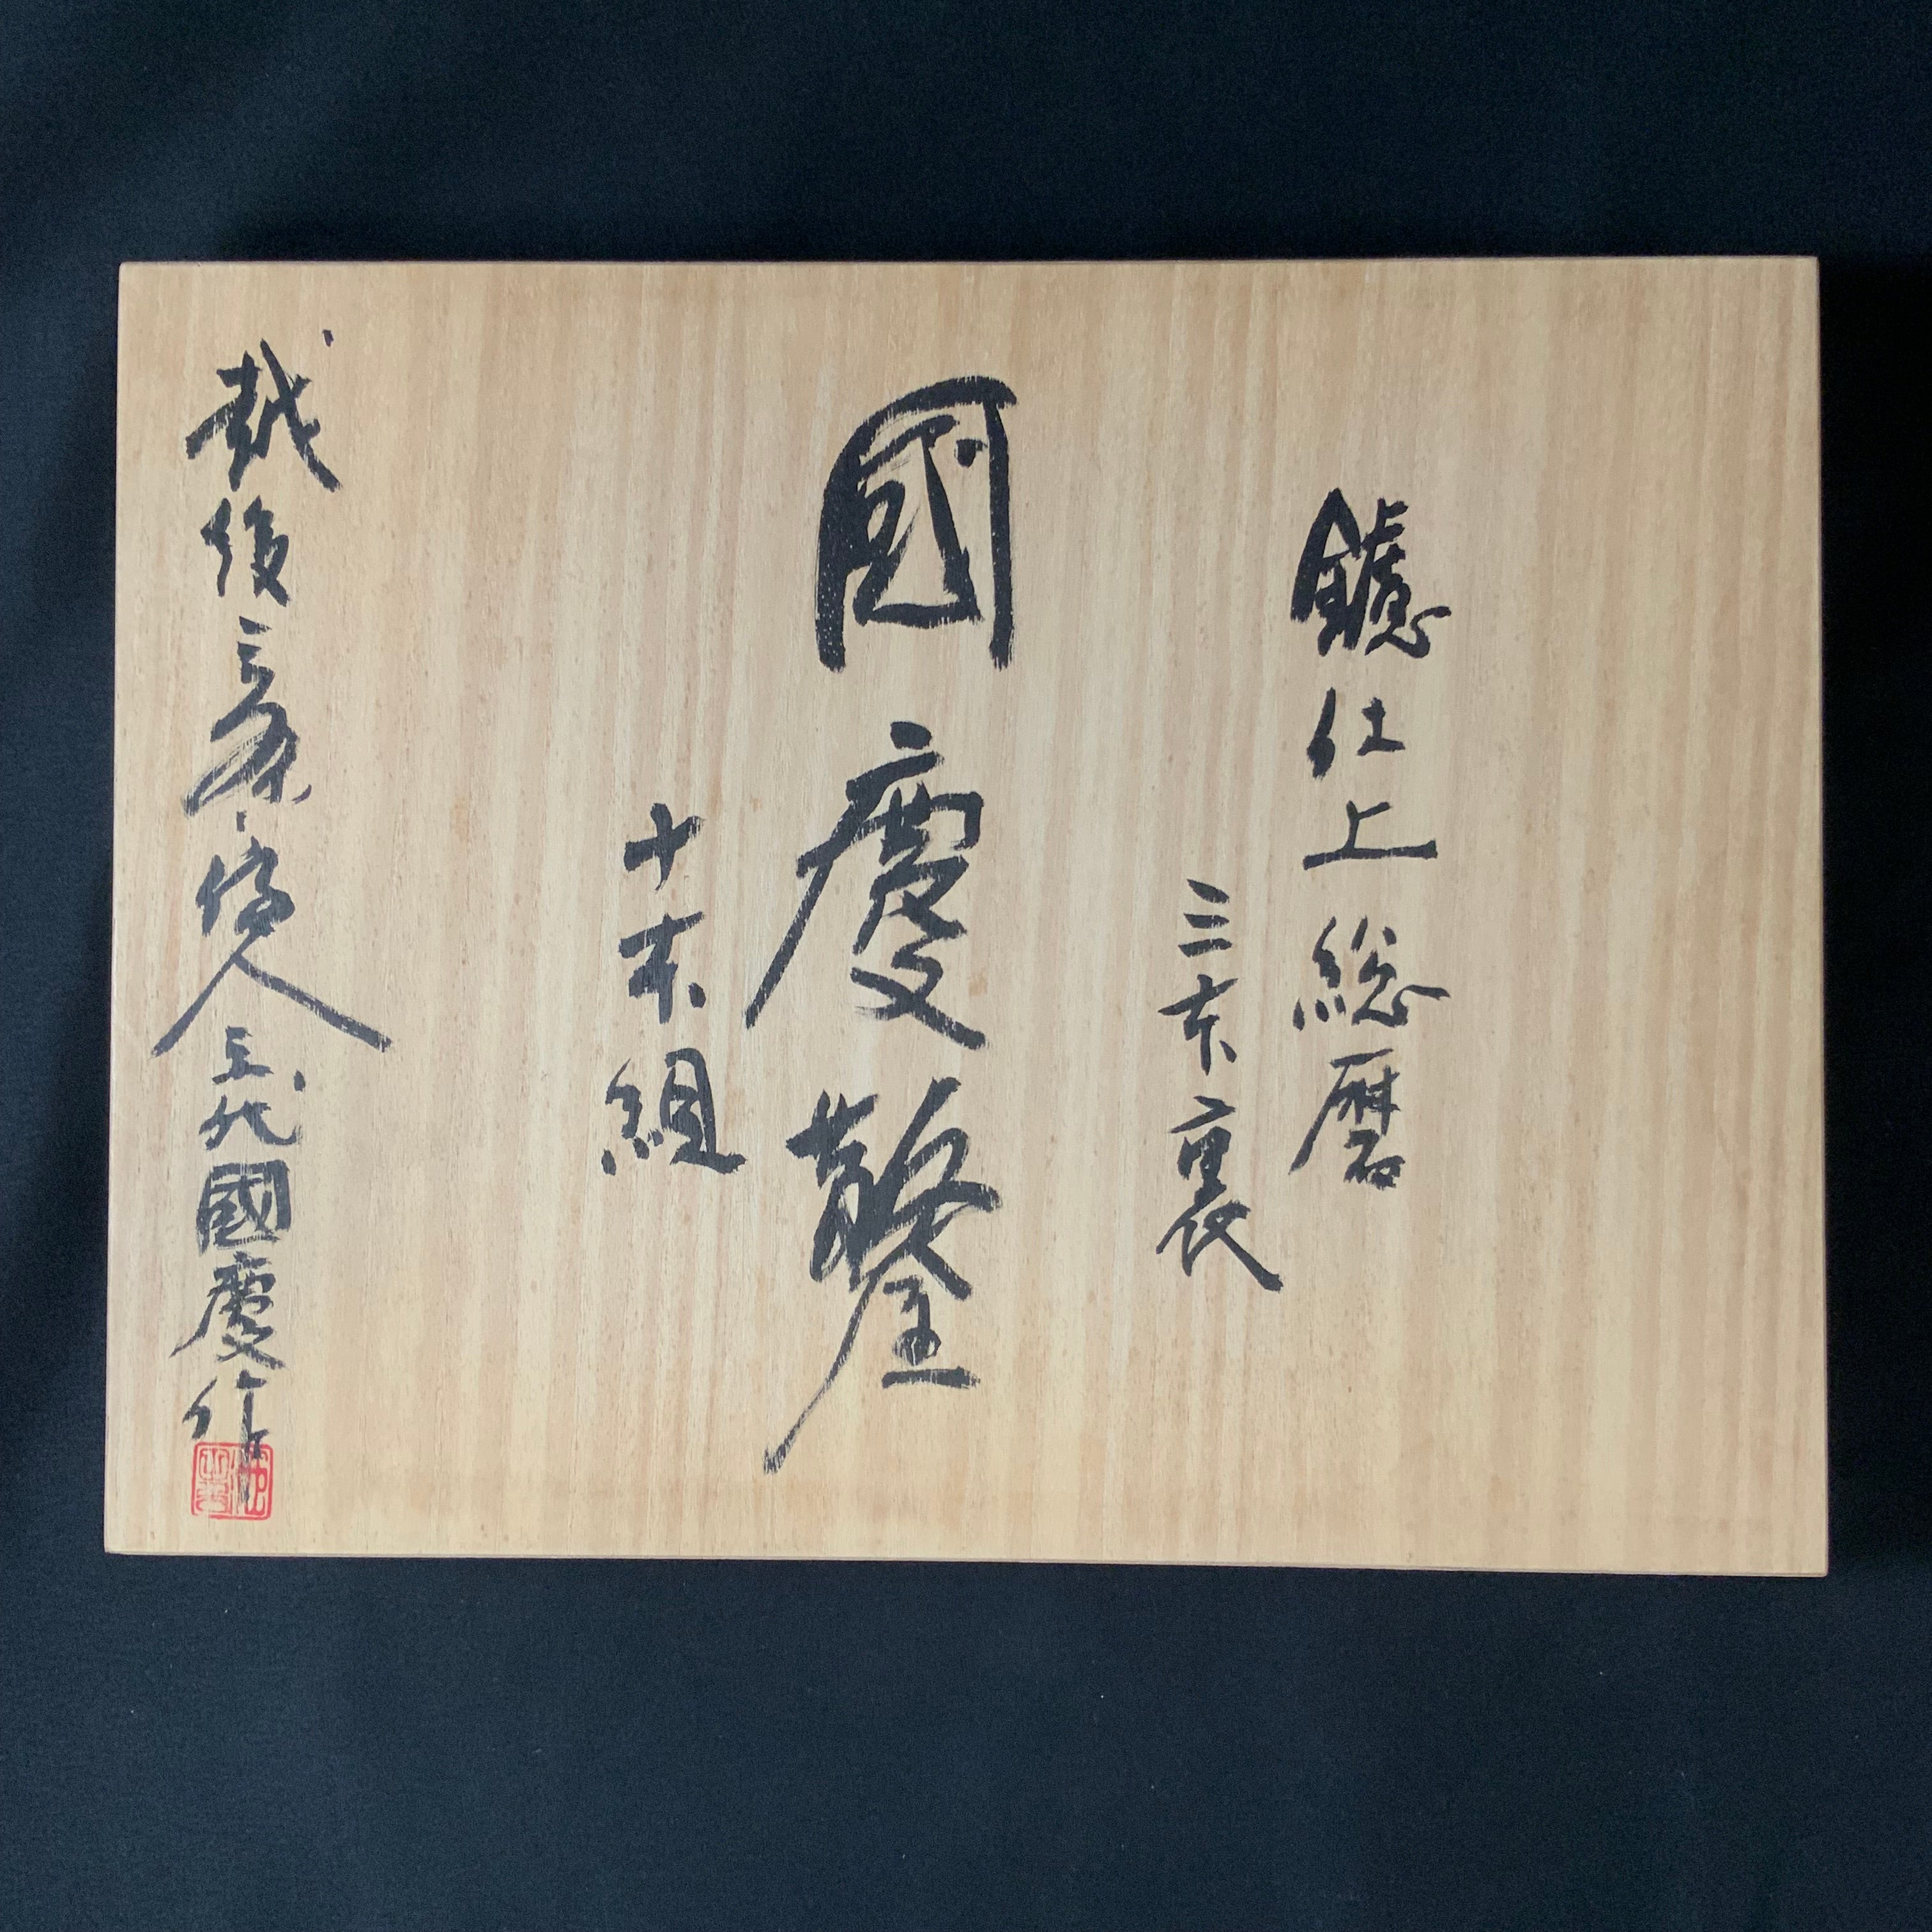 鑢仕上総磨
三本裏
國慶鑿
十本組
越後三条住人三代國慶作